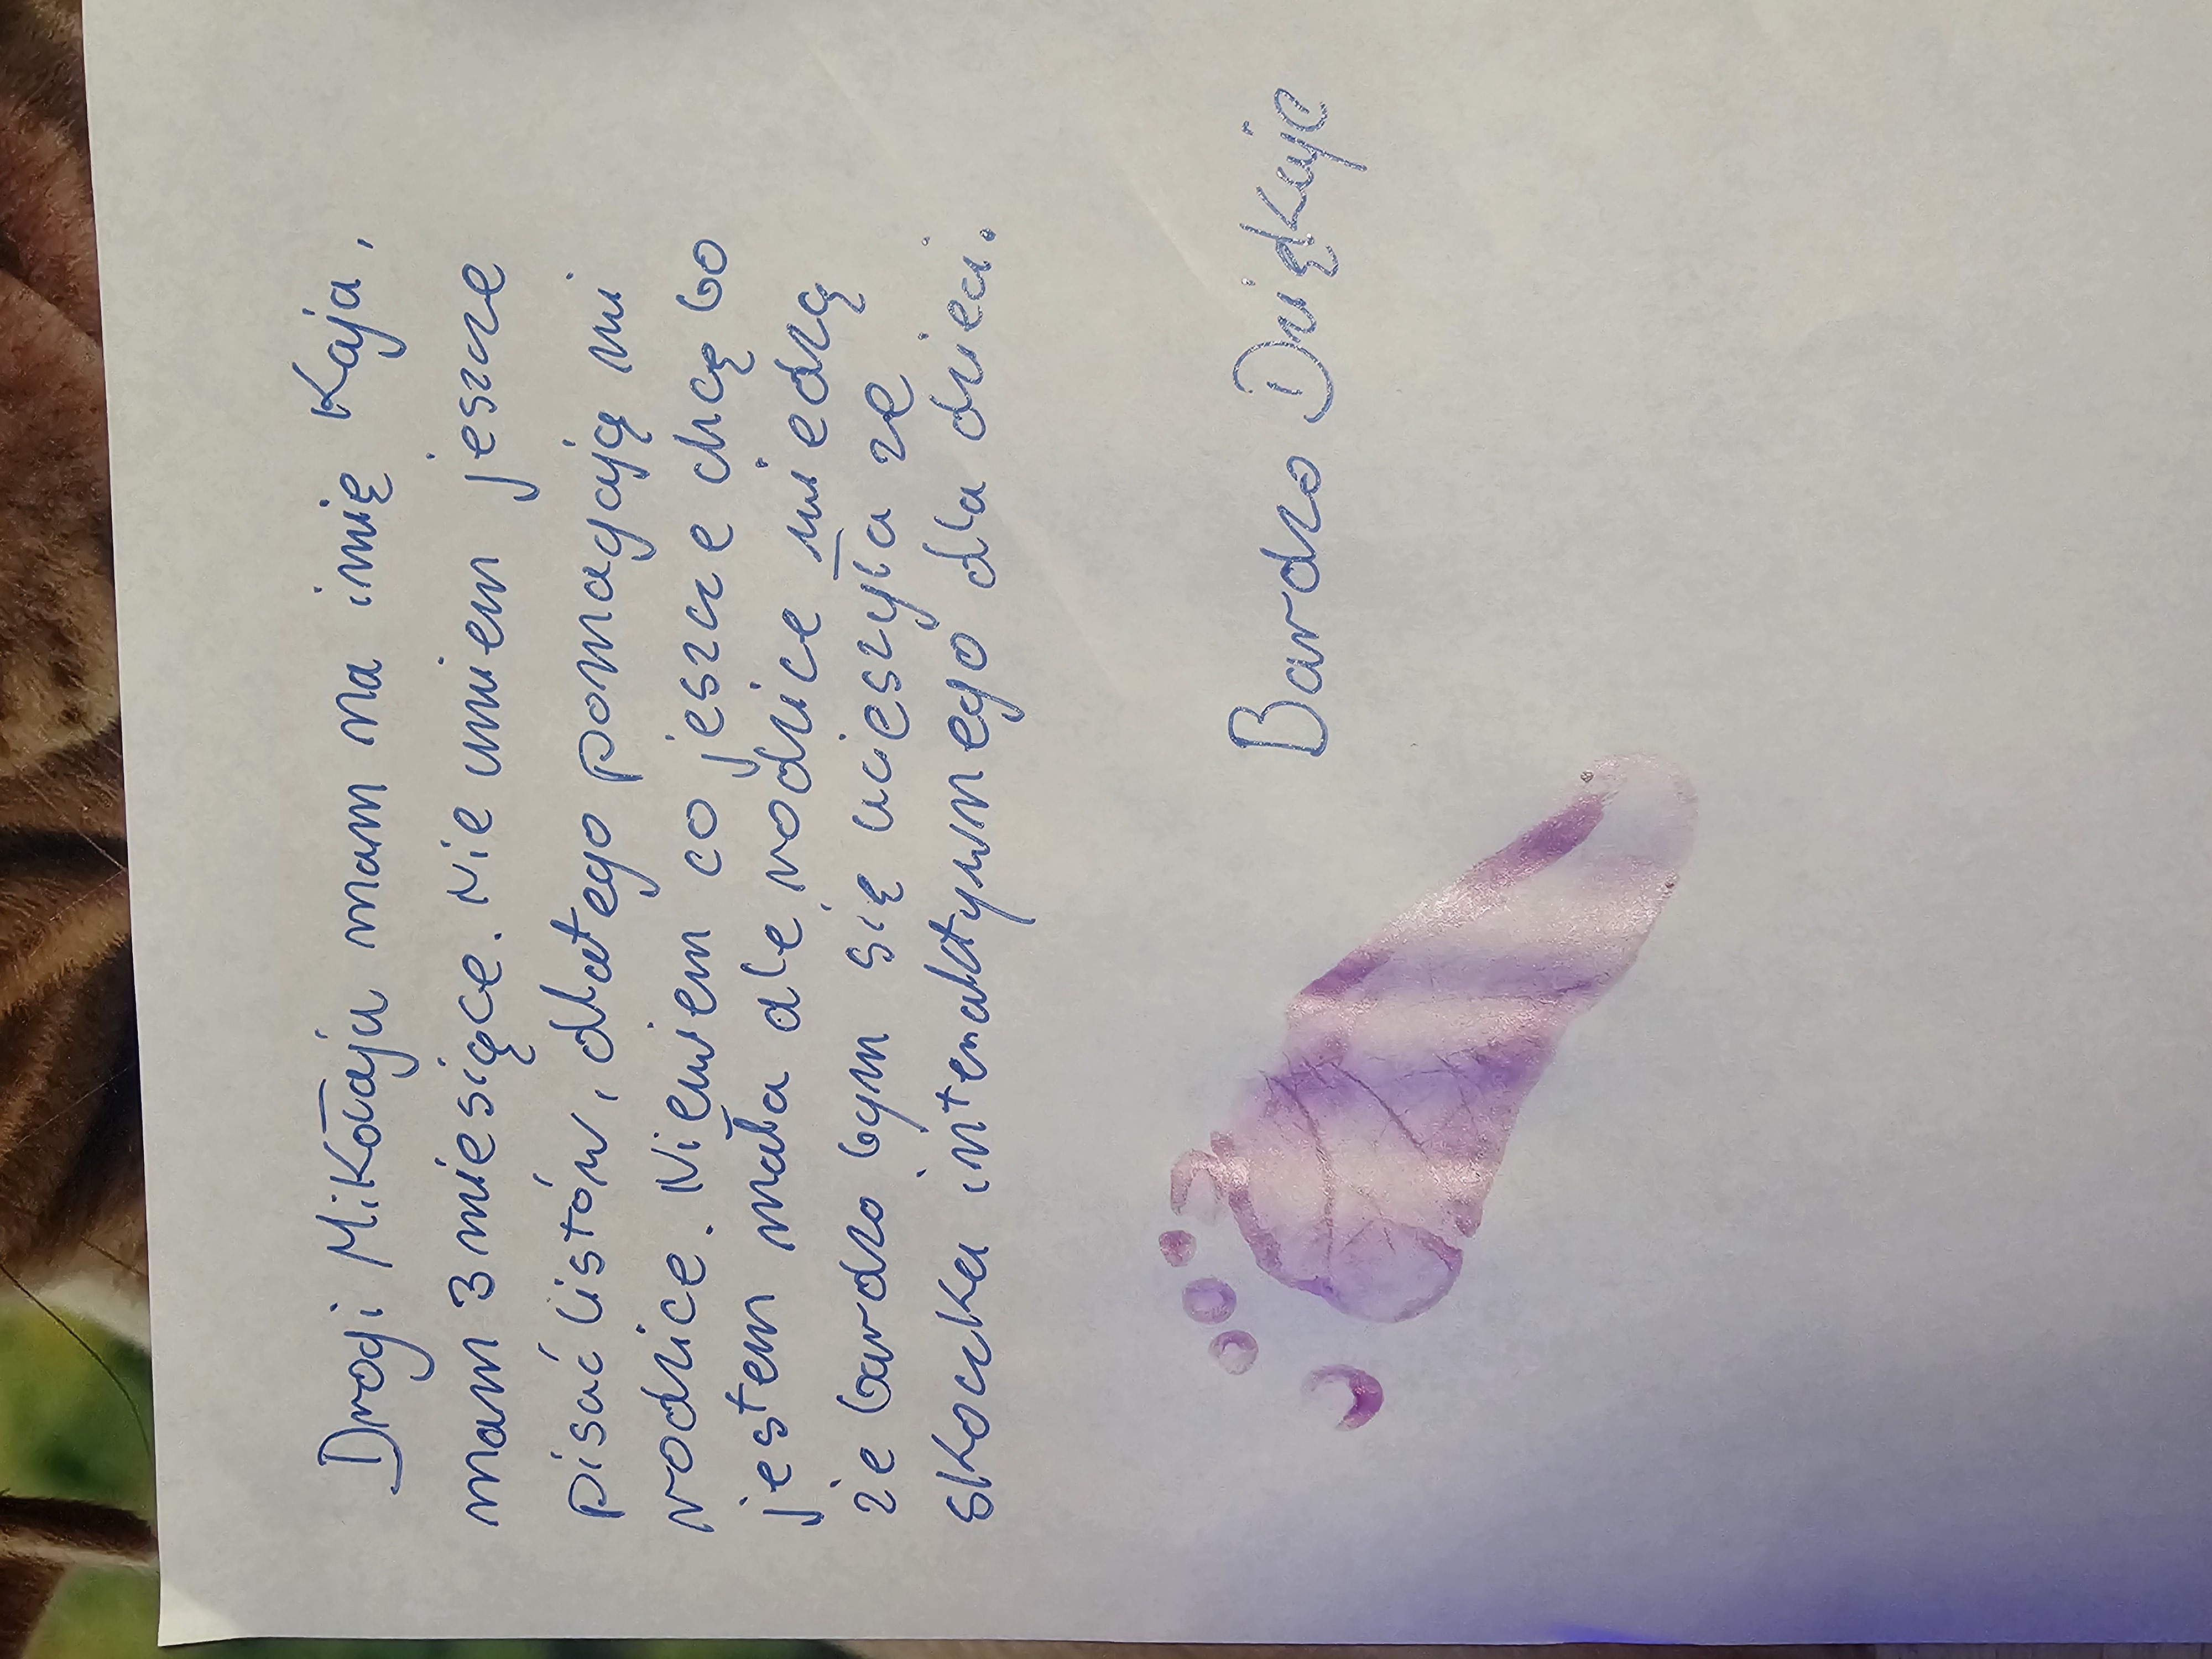 Drogi Mikołaju mam na imię Kaja,
mam 3 miesiące. Nie umiem jeszcze
pisać listów, dlatego pomagają mi
rodzice. Niewiem co jeszcze chcę bo
jestem mała ale rodzice wiedzą
że bardzo bym się ucieszyła ze
skoczka interaktywnego dla dzieci.
Bardzo Dziękuję